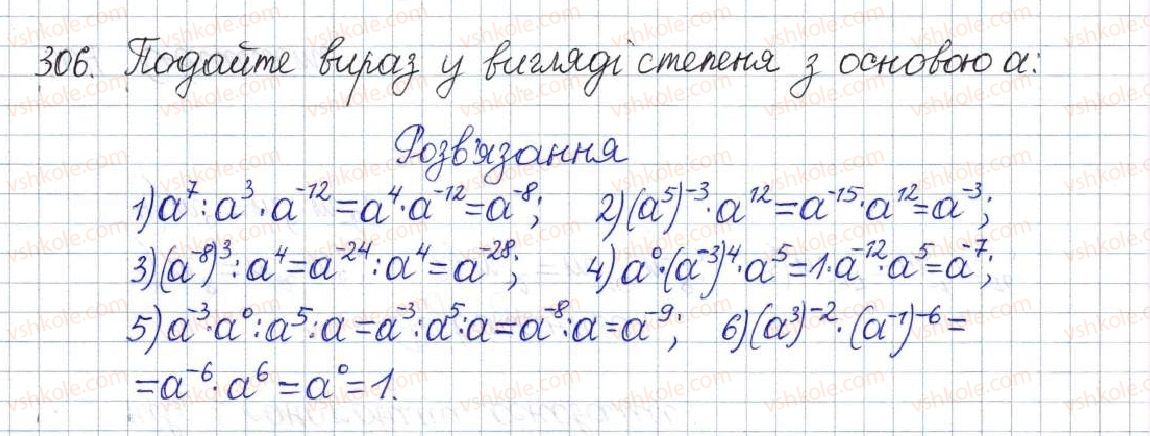 306. Подайте вираз у вигляді степеня з основою a:
Розв'язання
1) a⁷ : a³ · a⁻¹² = a⁴ · a⁻¹² = a⁻⁸; 2) (a⁵)⁻³ · a¹² = a⁻¹⁵ · a¹² = a⁻³;
3) (a⁻⁸)³ : a⁴ = a⁻²⁴ : a⁴ = a⁻²⁸; 4) a⁰ · (a⁻³)⁴ · a⁵ = 1 · a⁻¹² · a⁵ = a⁻⁷;
5) a⁻³ · a⁰ : a⁵ : a = a⁻³ : a⁵ : a = a⁻⁸ : a = a⁻⁹; 6) (a³)⁻² · (a⁻¹)⁻⁶ =
= a⁻⁶ · a⁶ = a⁰ = 1.